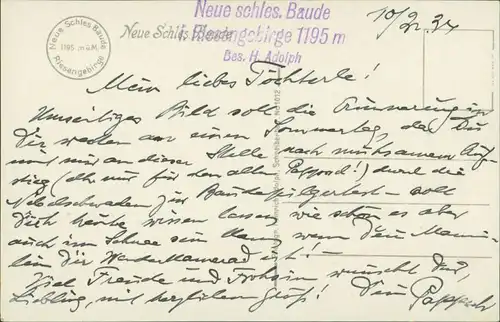 Neue schles. Baude
Riesengebirge 1195 m
Bes. H. Adolph
Neue Schles. Baude
1195 m ü.M.
Riesengebirge
Neue Schles. Baude
10/2. 34
Mein liebes Töchterle!
Umseitiges Bild soll die Erinnerung in
Dir wecken an einen Sommertag, da Du
mit mir an dieser Stelle nach mühsamem Auf-
stieg (aber nur für den alten Pappend!) durch die
Nebelschwaden zur Baude pilgertest – soll
Dich heute wissen lassen, wie schön es aber
auch im Schnee sein kann, wenn Dein Mamu-
lein Dir Wanderkamerad ist! –
Viel Freude und Frohsinn wünscht Dir,
Liebling, mit herzlichem Gruß! Dein Pappend